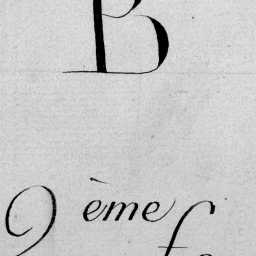 B
9ème